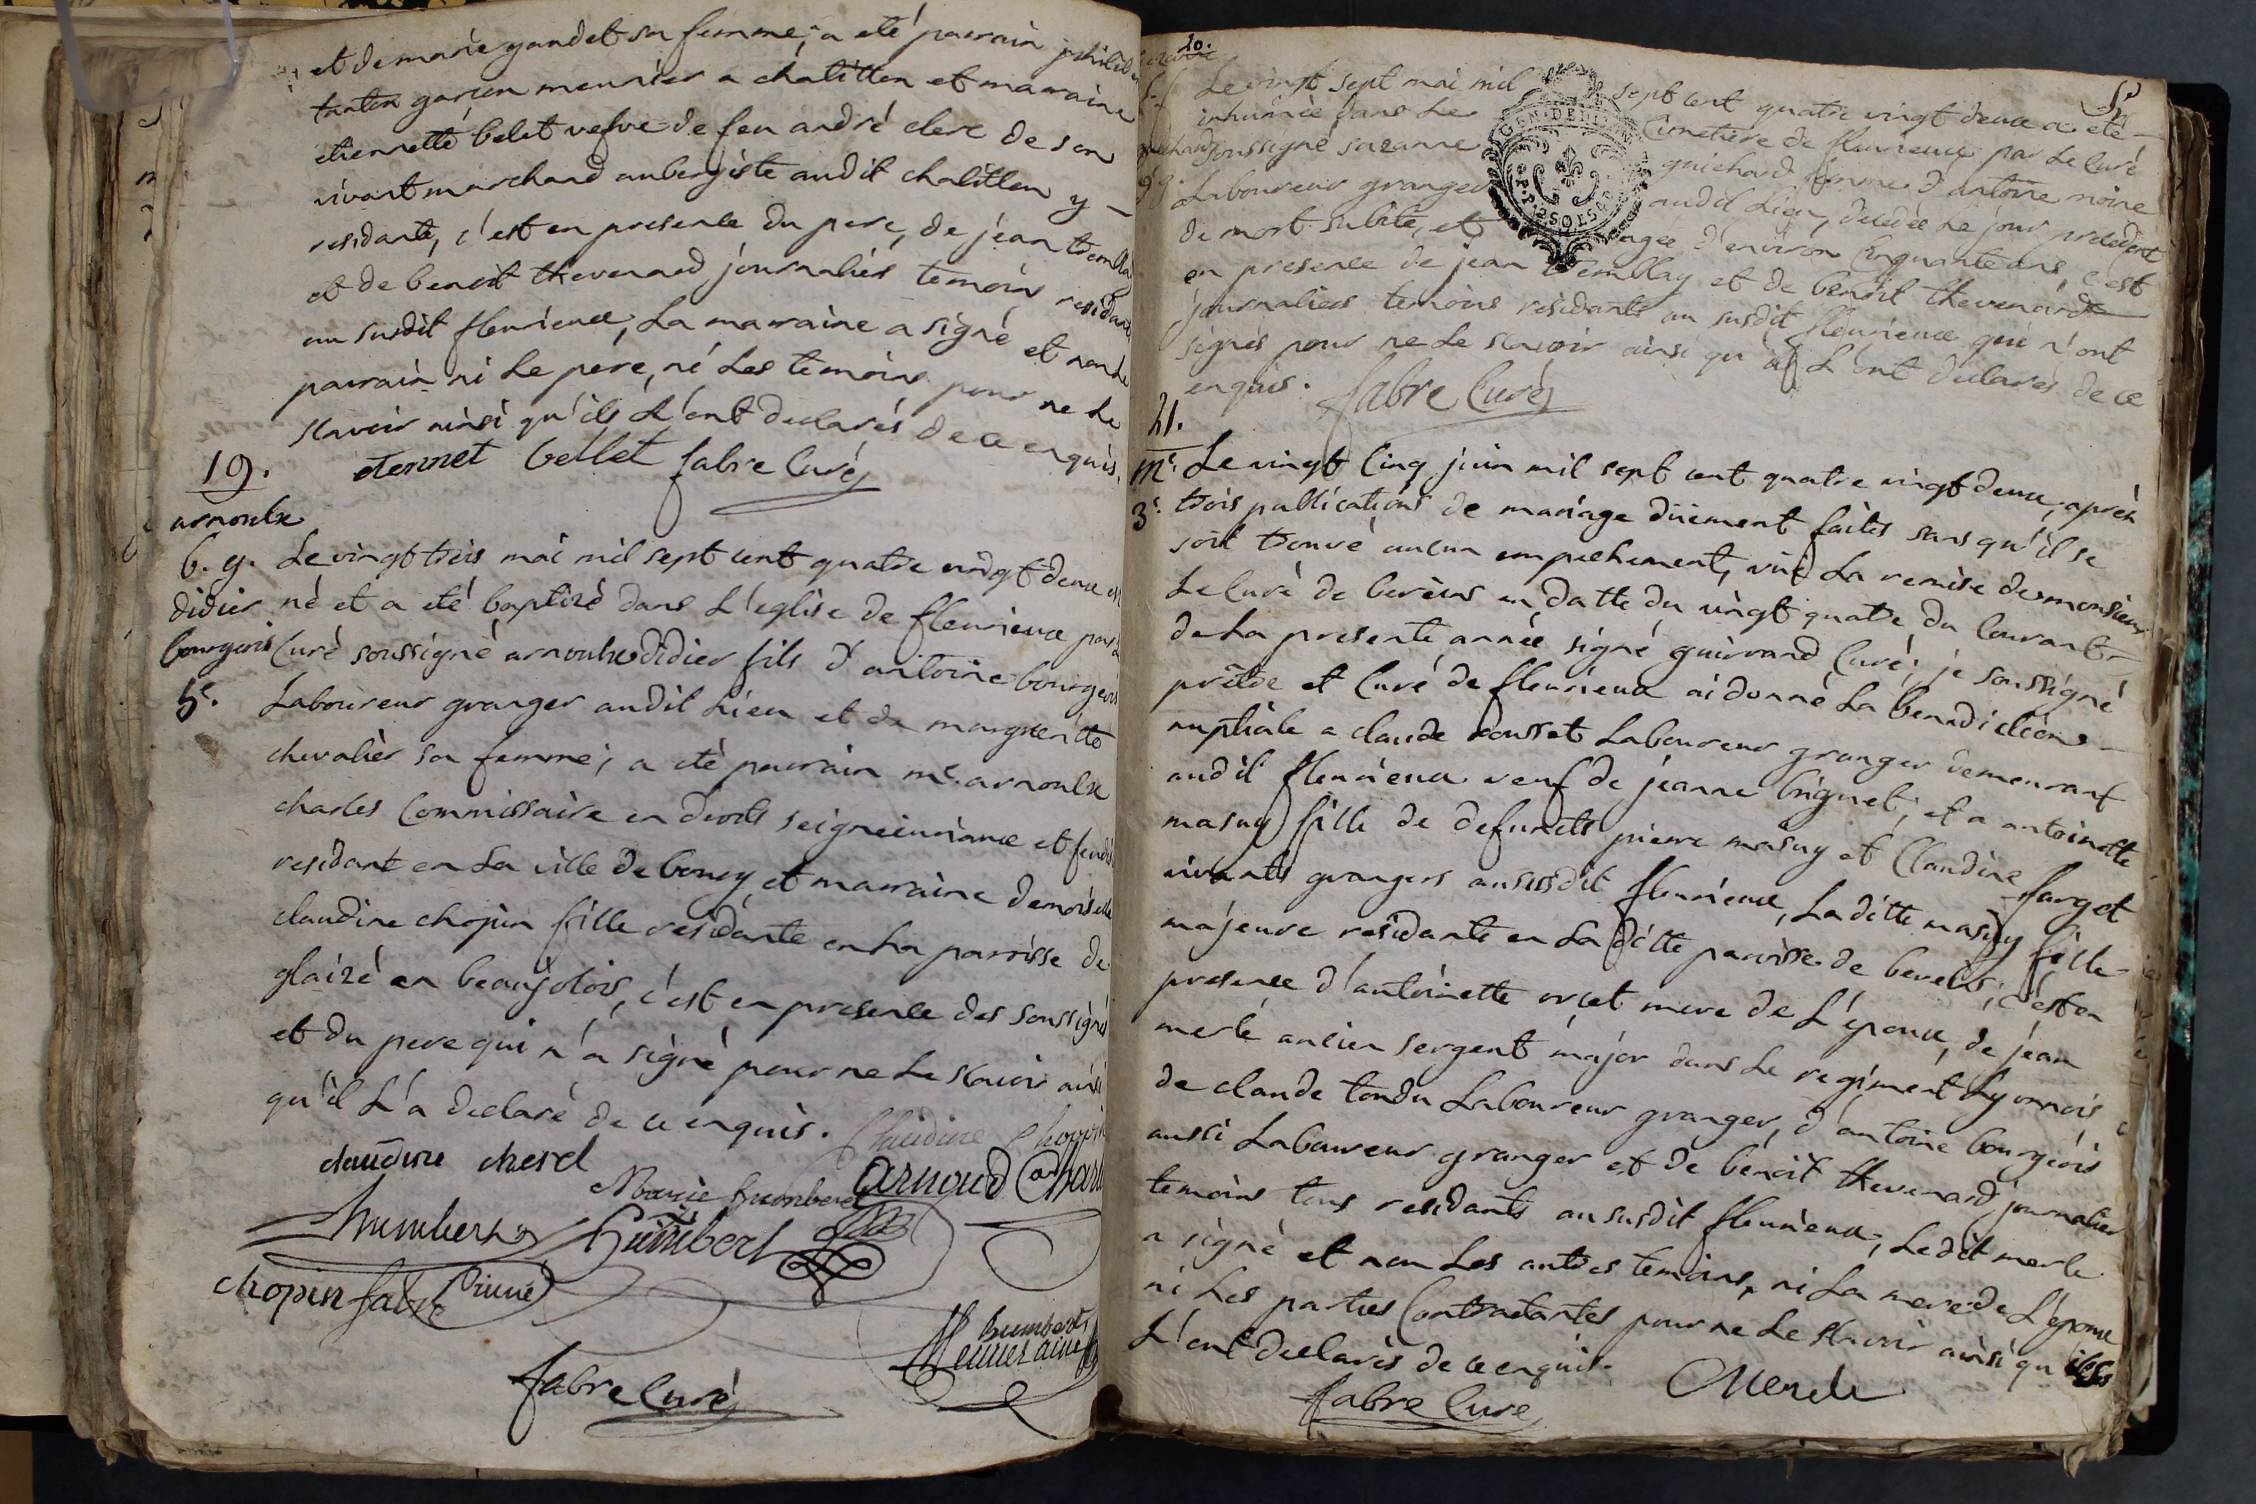 et de marie gandet sa femme; a eté parrain philib
tonton garcon meunier a chatillon et marraine
etiennette belet vefve de feu andré clerc de son
vivant marchand aubergiste audit chatillon y
residante, c'est en presence du pere, de jean tremblay
et de benoit thevenard journaliers temoins residants
au susdit fleurieux, la marraine a signé et non le
parrain ni le pére, ni les temoins pour ne le
scavoir ainsi qu'ils l'ont declarés de ce enquis.
etiennet bellet fabre Curé
19.
arnoulx
b. g.
didier
bourgeois
5e.
Le vingt trois mai mil sept cent quatre vingt deux est
né et a eté baptizé dans l'eglise de fleurieux par le
Curé soussigné arnoulx didier fils d'antoine bourgeois
Laboureur granger audit lieu et de margueritte
chevalier sa femme; a eté parrain me. arnoulx
charles Commissaire en droits seigneuriaux et feodaux
residant en la ville de bourg et marraine demoiselle
claudine chopin fille residante en la parroisse de
glaizé en beaujolois, c'est en presence des soussignés
et du pere qui n'a signé pour ne le scavoir ainsi
qu'il l'a declaré de ce enquis. Claudine Chopin
claudine cherel
Marie humbert arnoud Charle
humbert humbert
chopin fabre
humbert
fabre Curé
20.
Le vingt sept mai mil sept cent quatre vingt deux a eté
inhumée dans le Cimetiere de fleurieux par le Curé
soussigné suzanne guichard femme d'antoine moiné
Laboureur granger audit lieu, decedée le jour precedent
de mort subite, et agée d'environ Cinquante ans, c'est
en presence de jean tremblay et de benoit thevenard
journaliers temoins residants au susdit fleurieux qui n'ont
signés pour ne le scavoir ainsi qu'ils l'ont declarés de ce
enquis. fabre Curé
21.
me.
3e.
Le vingt Cinq juin mil sept cent quatre vingt deux, après
trois publications de mariage düement faites sans qu'il se
soit trouvé aucun empechement, vüe la remise de monsieur
Le Curé de bereins en datte du vingt quatre du Courant
de la presente année signé guirrand Curé; je soussigné
prêtre et Curé de fleurieux ai donné la benediction
nuptiale a claude rousset Laboureur granger demeurant
audit fleurieux veuf de jeanne briguet; et a antoinette
masuy fille de defunets pierre masuy et Claudine farget
vivants grangers au susdit fleurieux, la ditte masuy fille
majeure residante en la ditte parroisse de bereins; c'est en
presence d'antoinette orcet mere de l'epoux, de jean
merle ancien sergent major dans le regiment Lyonnois
de claude tondu Laboureur granger, d'antoine bourgeois
aussi Laboureur granger et de benoit thevenard journalier
temoins tous residants au susdit fleurieux, le dit merle
a signé et non les autres temoins, ni la mere de l'epoux
ni les parties Contractantes pour ne le scavoir ainsi qu'ils
l'ont declarés de ce enquis.
fabre Curé Merle